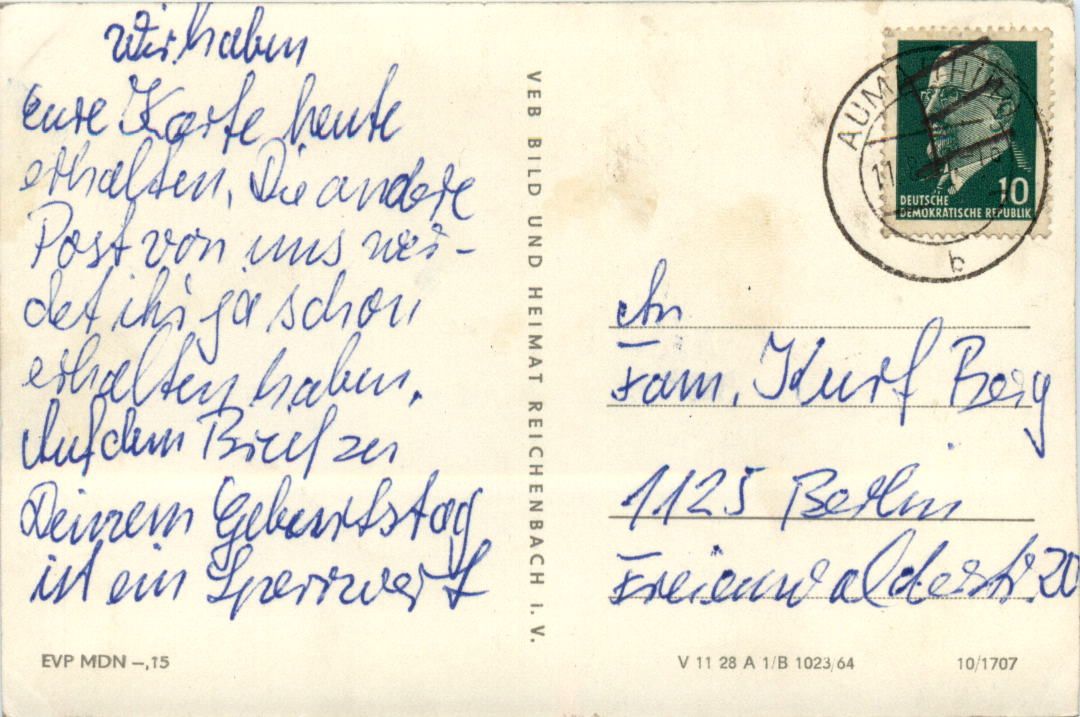 Wir haben
eure Karte heute
erhalten. Die andere
Post von uns wer-
det ihr ja schon
erhalten haben.
Auf dem Brief zu
Deinem Geburtstag
ist ein Sperrwert
EVP MDN –,15
VEB BILD UND HEIMAT REICHENBACH I. V.
AUMA (THÜR)
b
10
DEUTSCHE
DEMOKRATISCHE REPUBLIK
An
Fam. Kurt Berg
1125 Berlin
Freienwalderstr. 20
V 11 28 A 1/B 1023/64
10/1707